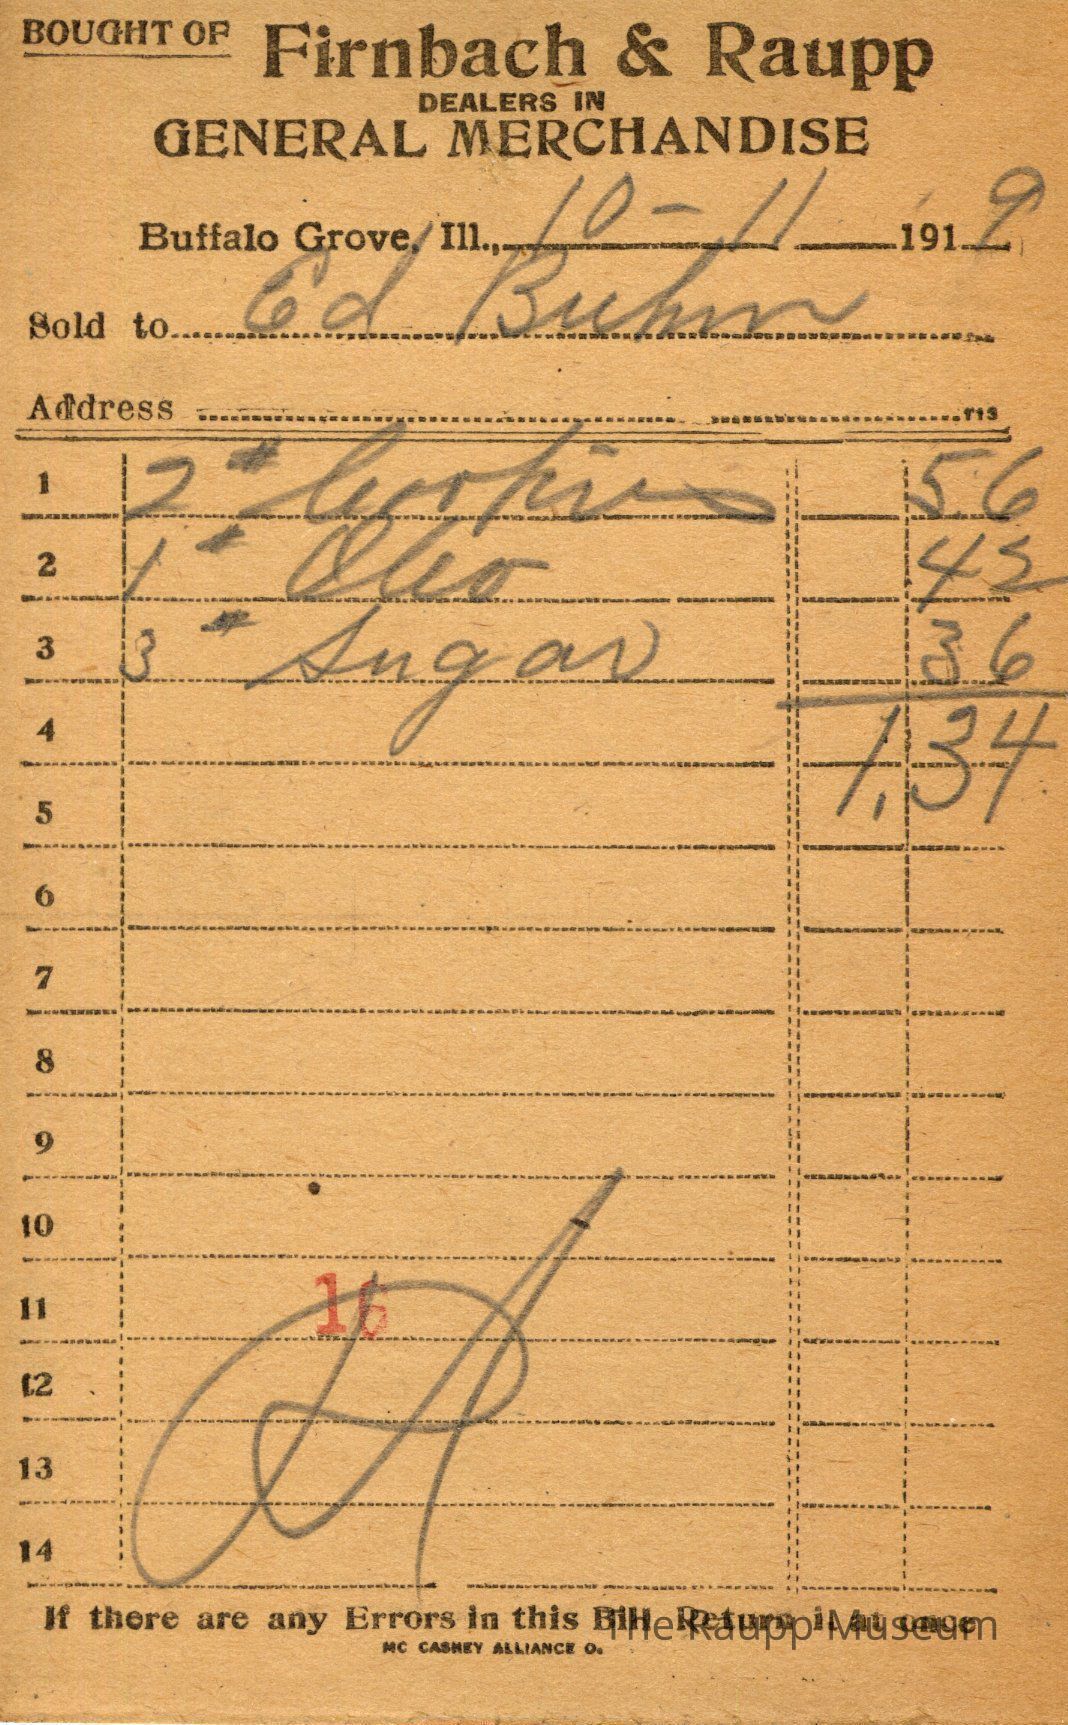 BOUGHT OF Firnbach & Raupp
DEALERS IN
GENERAL MERCHANDISE
Buffalo Grove, Ill., 10-11 1919
Sold to Ed Buhm
Address
1 2 # Cookies 56
2 1 # Oleo 42
3 3 # Sugar 36
4 1.34
5
6
7
8
9
10
11 16
12
13
14
If there are any Errors in this Bill Return it at once
The Raupp Museum
MC CASKEY ALLIANCE O.